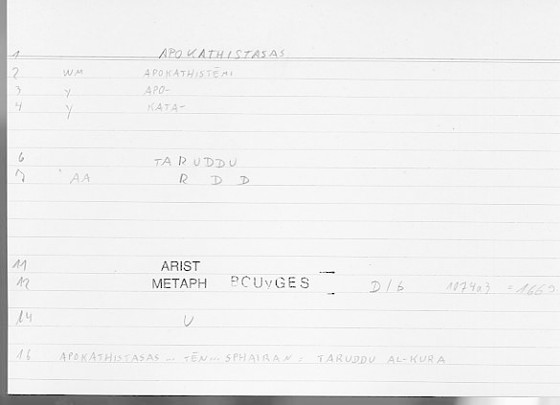 1 APOKATHISTASAS
2 WM APOKATHISTĒMI
3 y APO-
4 y KATA-
6 TARUDDU
7 AA R D D
11 ARIST
12 METAPH BOUyGES D/6 1074a3 = 1669
14 U
16 APOKATHISTASAS ... TĒN ... SPHAIRAN = TARUDDU AL-KURA